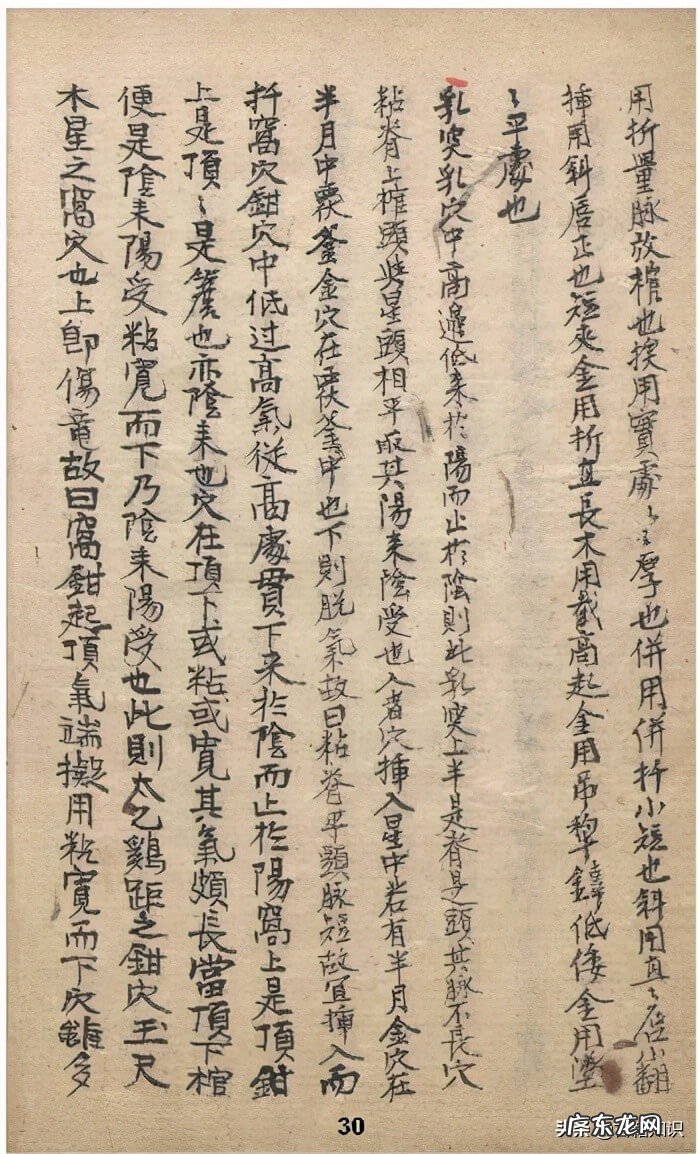 用折量脉放棺也挨用實處〻〻厚也併用併扦小短也斜用直〻唇小翻
揷用斜唇正也短夾金用折直長木用截高起金用吊犂鐴低倭金用墾
〻平處也
乳突乳穴中高邉低来於陽而止於陰則此乳突上半是脊是頭其脉不長穴
粘脊上棺頭與星頭相平取其陽来陰受也入者穴揷入星中若有半月金穴在
半月中覆釜金穴在覆釜中也下則脱氣故曰粘脊平頭脉短故宜揷入而
扦窩穴鉗穴中低过高氣従高處貫下来於陰而止於陽窩上是頂鉗
上是頂〻是簷也亦陰来也穴在頂下或粘或寛其氣頗長當頂下棺
便是陰来陽受粘寛而下乃陰来陽受也此則太乙鷄距之鉗穴玉尺
木星之窩穴也上即傷竜故曰窩鉗起頂氣端擬用粘寛而下穴雖多
30
头条东龙网